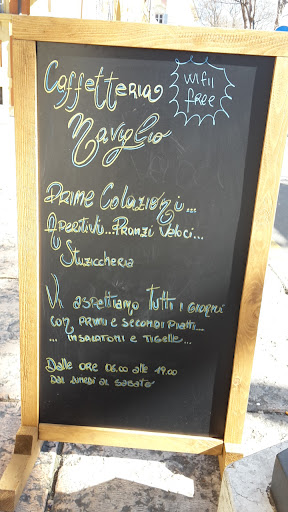 Caffetteria
wifii
free
Naviglio
Prime Colazioni...
Aperitivi... Pranzi Veloci...
Stuzziccheria
Vi aspettiamo tutti i giorni
con primi e secondi piatti...
... insalatoni e tigelle...
Dalle ore 06.00 alle 19.00
dal lunedì al sabato